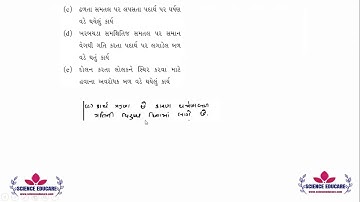 (c) ઢળતા સમતલ પર લપસતા પદાર્થ પર ઘર્ષણ
વડે થયેલું કાર્ય
(d) ખરબચડા સમક્ષિતિજ સમતલ પર સમાન
વેગથી ગતિ કરતા પદાર્થ પર લગાડેલ બળ
વડે થતું કાર્ય
(e) દોલન કરતા લોલકને સ્થિર કરવા માટે
હવાના અવરોધક બળ વડે થયેલું કાર્ય
કાર્ય ઋણ છે કારણ ઘર્ષણબળ
ગતિની વિરુદ્ધ દિશામાં લાગે છે.
SCIENCE EDUCARE
SCIENCE EDUCARE